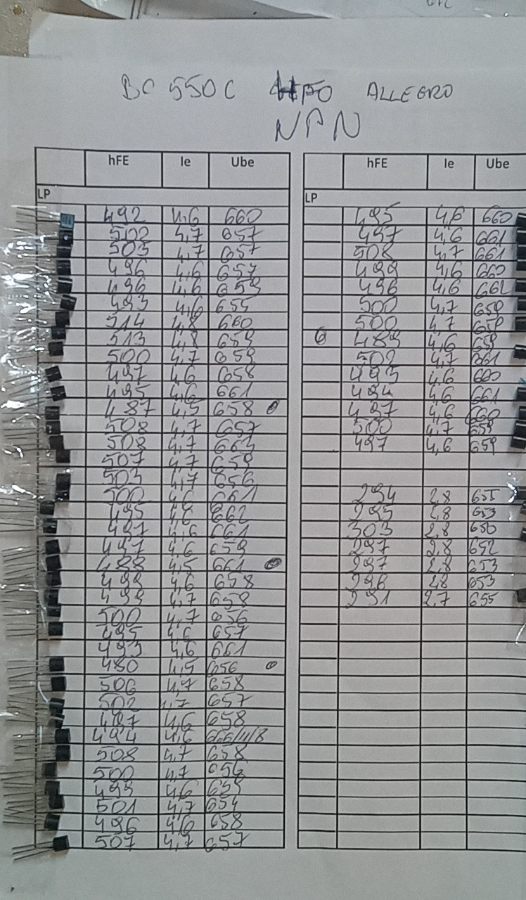 BC 550C ALLEGRO
NPN
hFE Ie Ube
LP
492 4,6 660
502 4,7 657
503 4,7 657
496 4,6 657
496 4,6 659
493 4,6 655
514 4,8 660
513 4,8 659
500 4,7 659
497 4,6 658
495 4,6 661
487 4,5 658
508 4,7 657
508 4,7 663
507 4,7 659
503 4,7 656
500 4,6 661
495 4,6 662
497 4,6 661
497 4,6 659
488 4,5 661
499 4,6 658
499 4,7 658
500 4,7 656
495 4,6 657
493 4,6 661
480 4,5 656
506 4,7 658
502 4,7 657
497 4,6 658
494 4,6
508 4,7 658
500 4,7 656
495 4,6 655
501 4,7 654
496 4,6 658
507 4,7 657
hFE Ie Ube
LP
495 4,6 660
497 4,6 661
508 4,7 661
499 4,6 660
496 4,6 662
500 4,7 659
500 4,7 659
6 489 4,6 659
502 4,7 661
493 4,6 660
494 4,6 661
497 4,6 660
500 4,7 659
497 4,6 659
294 2,8 655
295 2,8 653
303 2,8 650
297 2,8 652
297 2,8 653
296 2,8 653
291 2,7 655